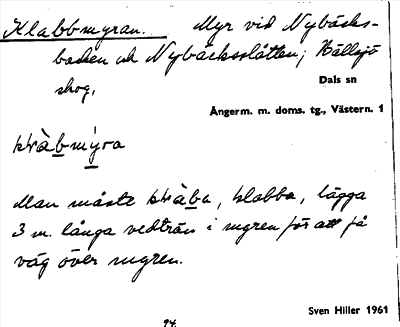 Klabbmyran. Myr vid Nybäcks-
backen och Nybäcksslåtten; Hällsjö
skog,
Dals sn
Ångerm. m. doms. tg., Västern. 1
myra
Man måste klabba, lägga
3 m. långa vedträn i myren för att få
väg över myren.
Sven Hiller 1961
94.